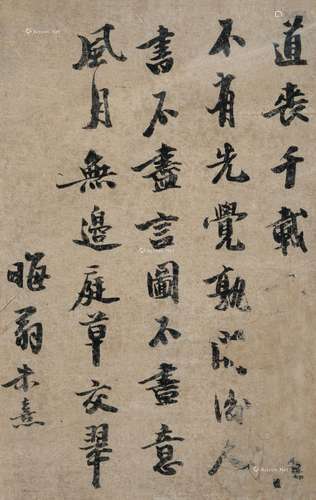 道喪千載
不有先覺孰開後人
書不盡言圖不盡意
風月無邊庭草交翠
晦翁朱熹